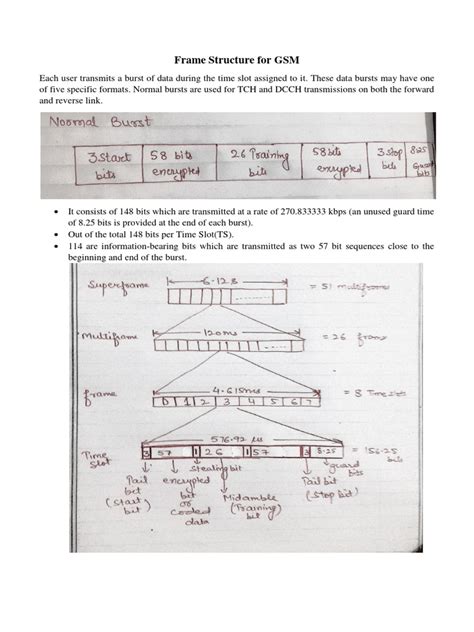 Frame Structure for GSM
Each user transmits a burst of data during the time slot assigned to it. These data bursts may have one
of five specific formats. Normal bursts are used for TCH and DCCH transmissions on both the forward
and reverse link.
Normal Burst
3 Start bits
58 bits encrypted
26 Training bits
58 bits encrypted
3 Stop bits
8.25 Guard bits
• It consists of 148 bits which are transmitted at a rate of 270.833333 kbps (an unused guard time
of 8.25 bits is provided at the end of each burst).
• Out of the total 148 bits per Time Slot(TS).
• 114 are information-bearing bits which are transmitted as two 57 bit sequences close to the
beginning and end of the burst.
Superframe
6.12 s
= 51 multiframe
Multiframe
120 ms
= 26 frame
frame
4.615ms
0 1 2 3 4 5 6 7
= 8 Time slots
576.92 μs
Time slot
3 57 1 26 1 57 3 8.25
= 156.25 bits
Tail bit (start bit)
encrypted bit or coded data
stealing bit
Midamble (Training) bit
Tail bit (Stop bit)
guard bits